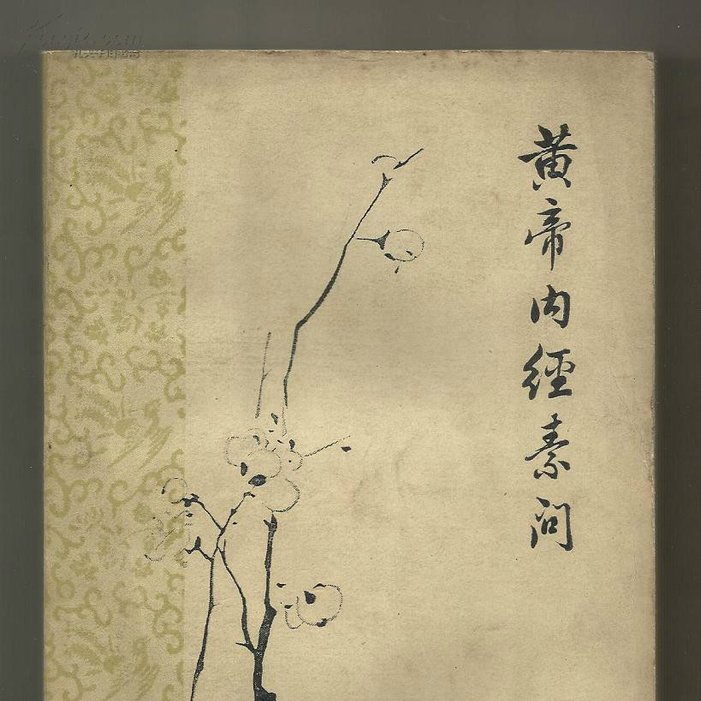 黄帝内經素问